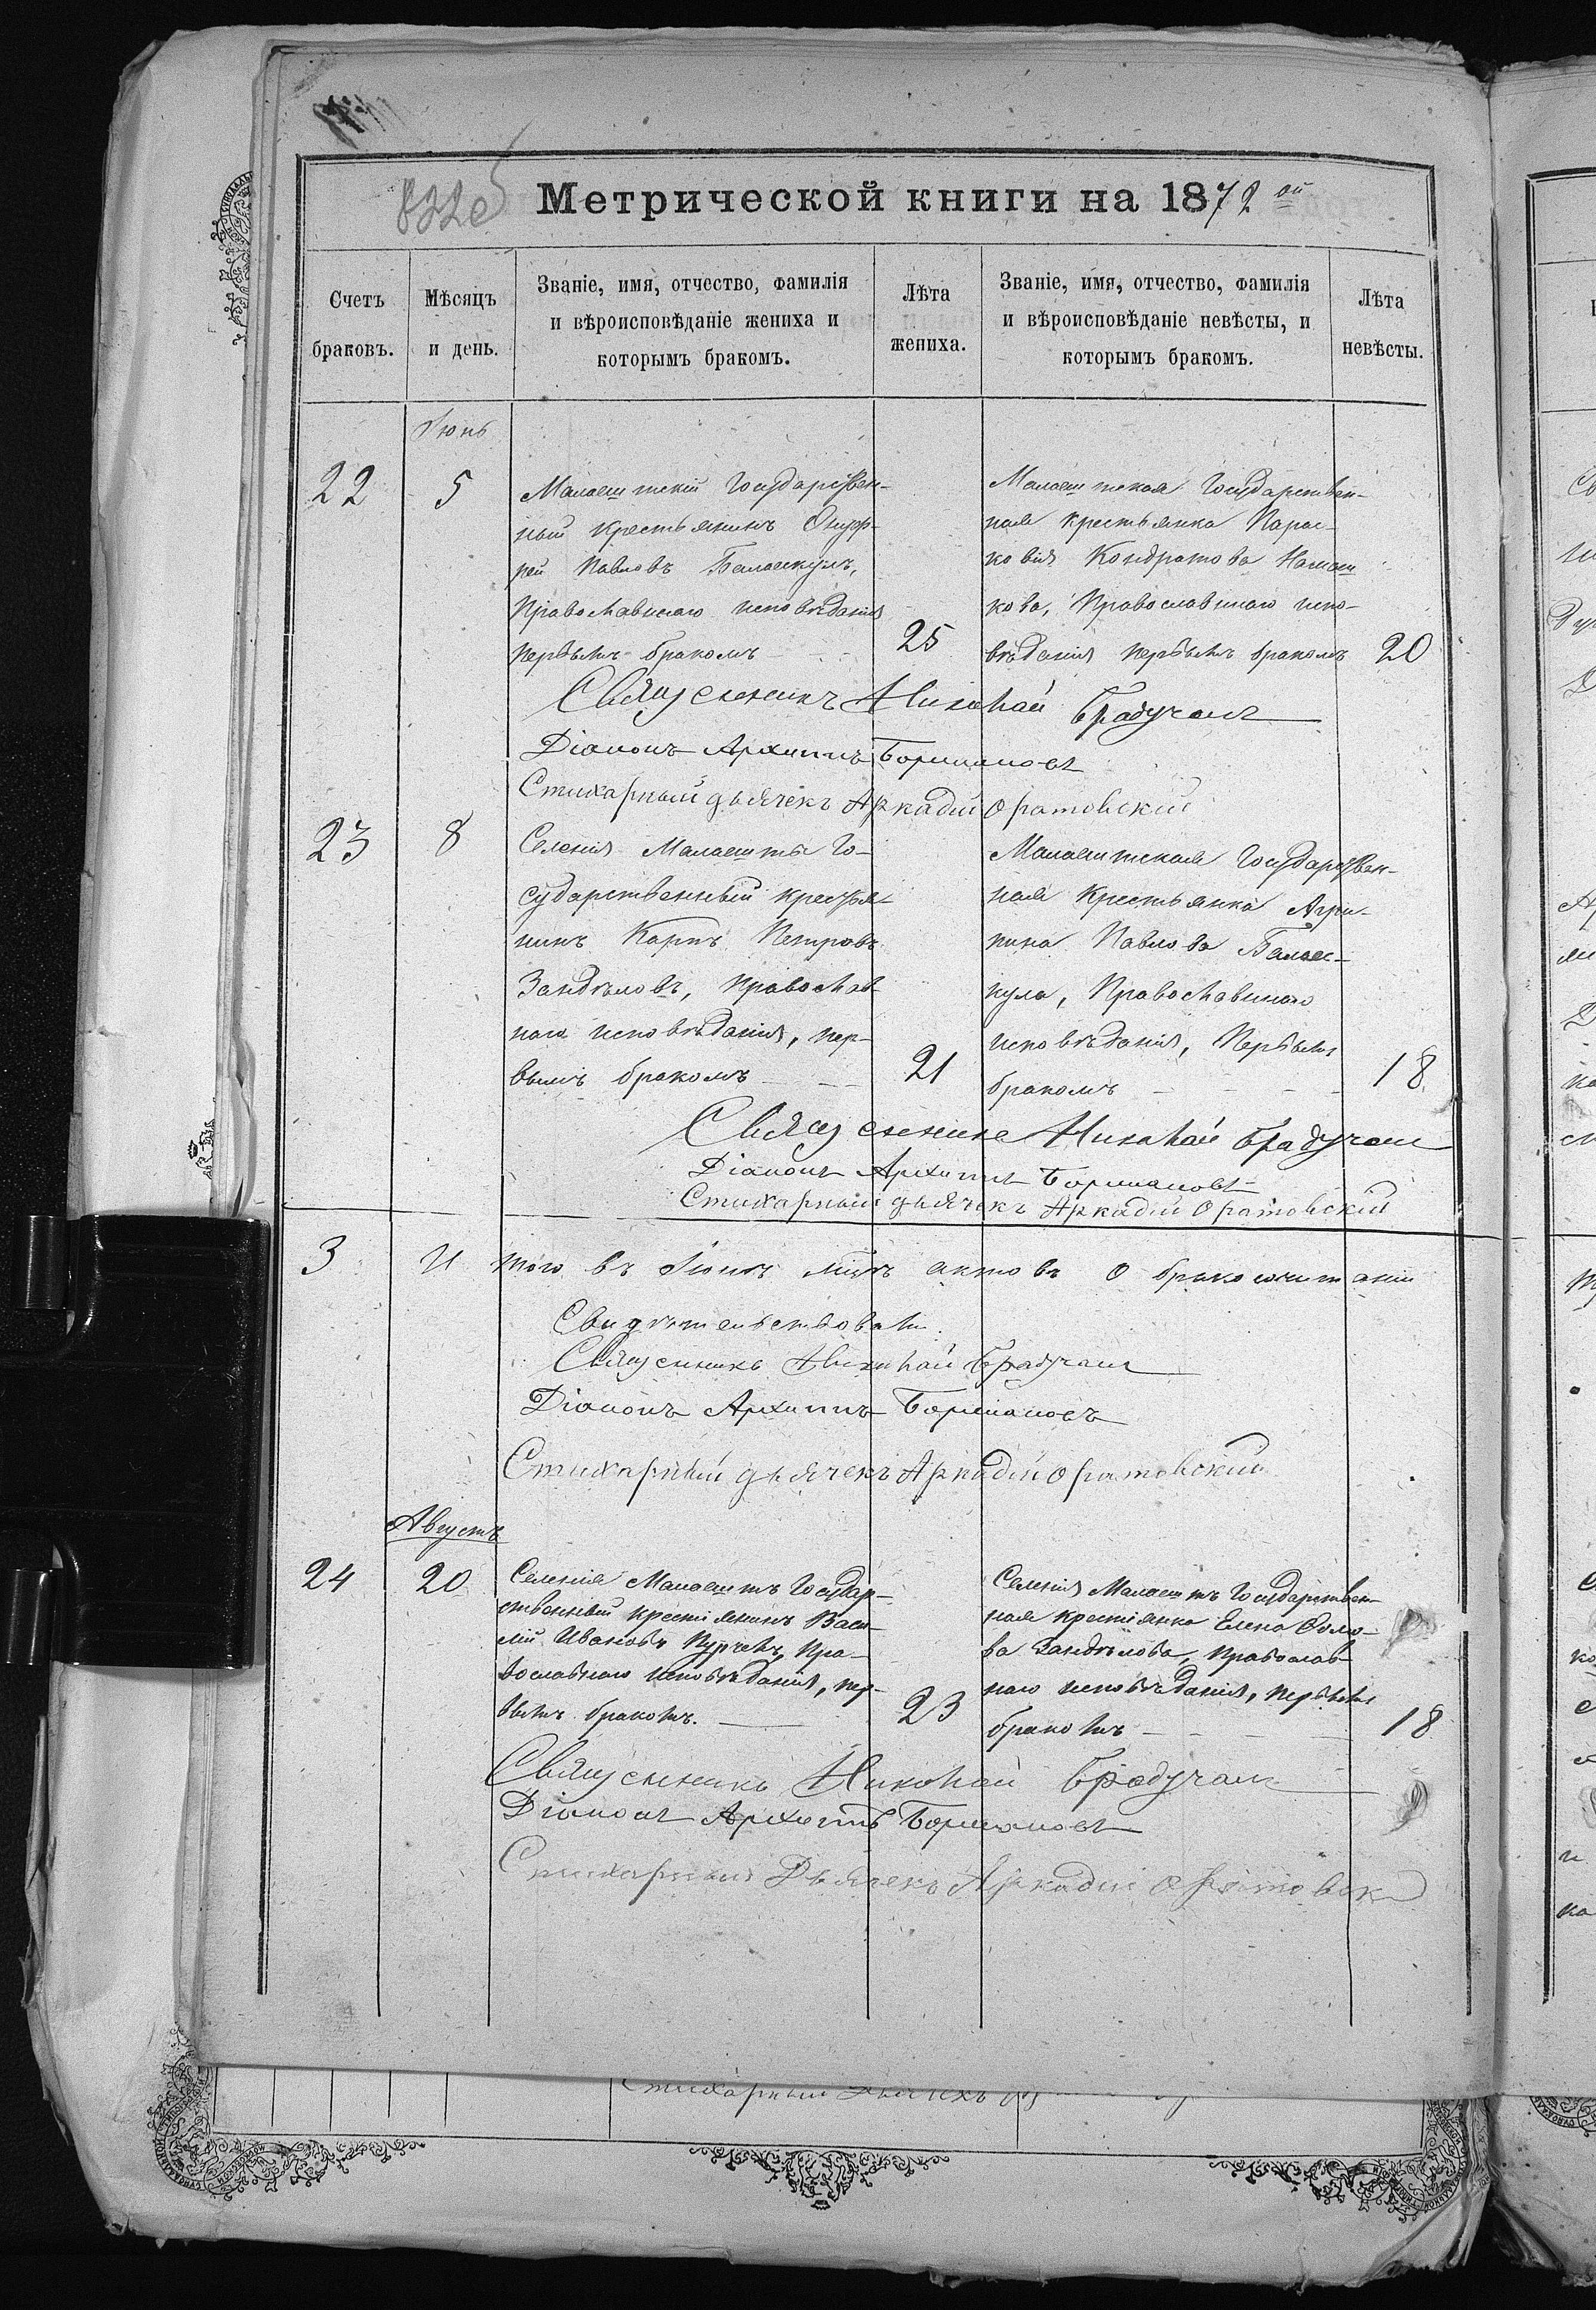 Метрической книги на 1872ой
Счетъ браковъ.
Мѣсяцъ и день.
Званіе, имя, отчество, фамилія
и вѣроисповѣданіе жениха и
которымъ бракомъ.
Лѣта жениха.
Званіе, имя, отчество, фамилія
и вѣроисповѣданіе невѣсты, и
которымъ бракомъ.
Лѣта невѣсты.
Іюнь
22
5
Малаештскій Государствен-
ный крестьянинъ Онуф-
рей Павловъ Балаекулъ,
Православнаго исповѣданія
первымъ бракомъ
25
Малаештская Государствен-
ная крестьянка Парас-
ковія Кондратова
кова, Православнаго испо-
вѣданія первымъ бракомъ
20
Священникъ Николай Брадучанъ
Діаконъ Архиппъ
Стихарный дьячекъ Аркадій Оратовскій
23
8
Селенія Малаешты Го-
сударственный крестья-
нинъ Карпъ Петровъ
Зандѣловъ, Православ-
наго исповѣданія, пер-
вымъ бракомъ
21
Малаештская Государствен-
ная крестьянка Агри-
пина Павлова Балае-
кула, Православнаго
исповѣданія, Первымъ
бракомъ
18
Священникъ Николай Брадучанъ
Діаконъ Архиппъ
Стихарный дьячекъ Аркадій Оратовскій
3 Итого въ Іюнѣ м͠цѣ актовъ о бракосочитаніи
Свидѣтельствовали
Священникъ Николай Брадучанъ
Діаконъ Архиппъ
Стихарный дьячекъ Аркадій Оратовскій
Августъ
24
20
Селенія Малаештъ Государ-
ственный крестіянинъ Васи-
лій Ивановъ Пурчелъ, Пра-
вославнаго исповѣданія, пер-
вымъ бракомъ.
23
Селенія Малаештъ Государствен-
ная крестіянка Елена
ва Зандѣлова, православ-
наго исповѣданія, первымъ
бракомъ
18
Священникъ Николай Брадучанъ
Діаконъ Архиппъ
Стихарный Дьячекъ Аркадій Оратовск
Стихарный Дьячекъ